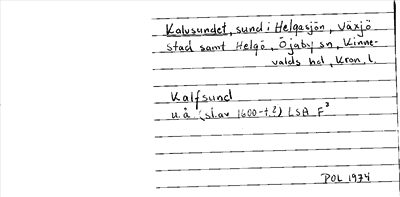 Kalvsundet, sund i Helgasjön, Växjö
stad samt Helgö, Öjaby sn, Kinne-
valds hd, Kron. l.
Kalfsund
u.å. (sl. av 1600-t.?) LSA F³
POL 1974